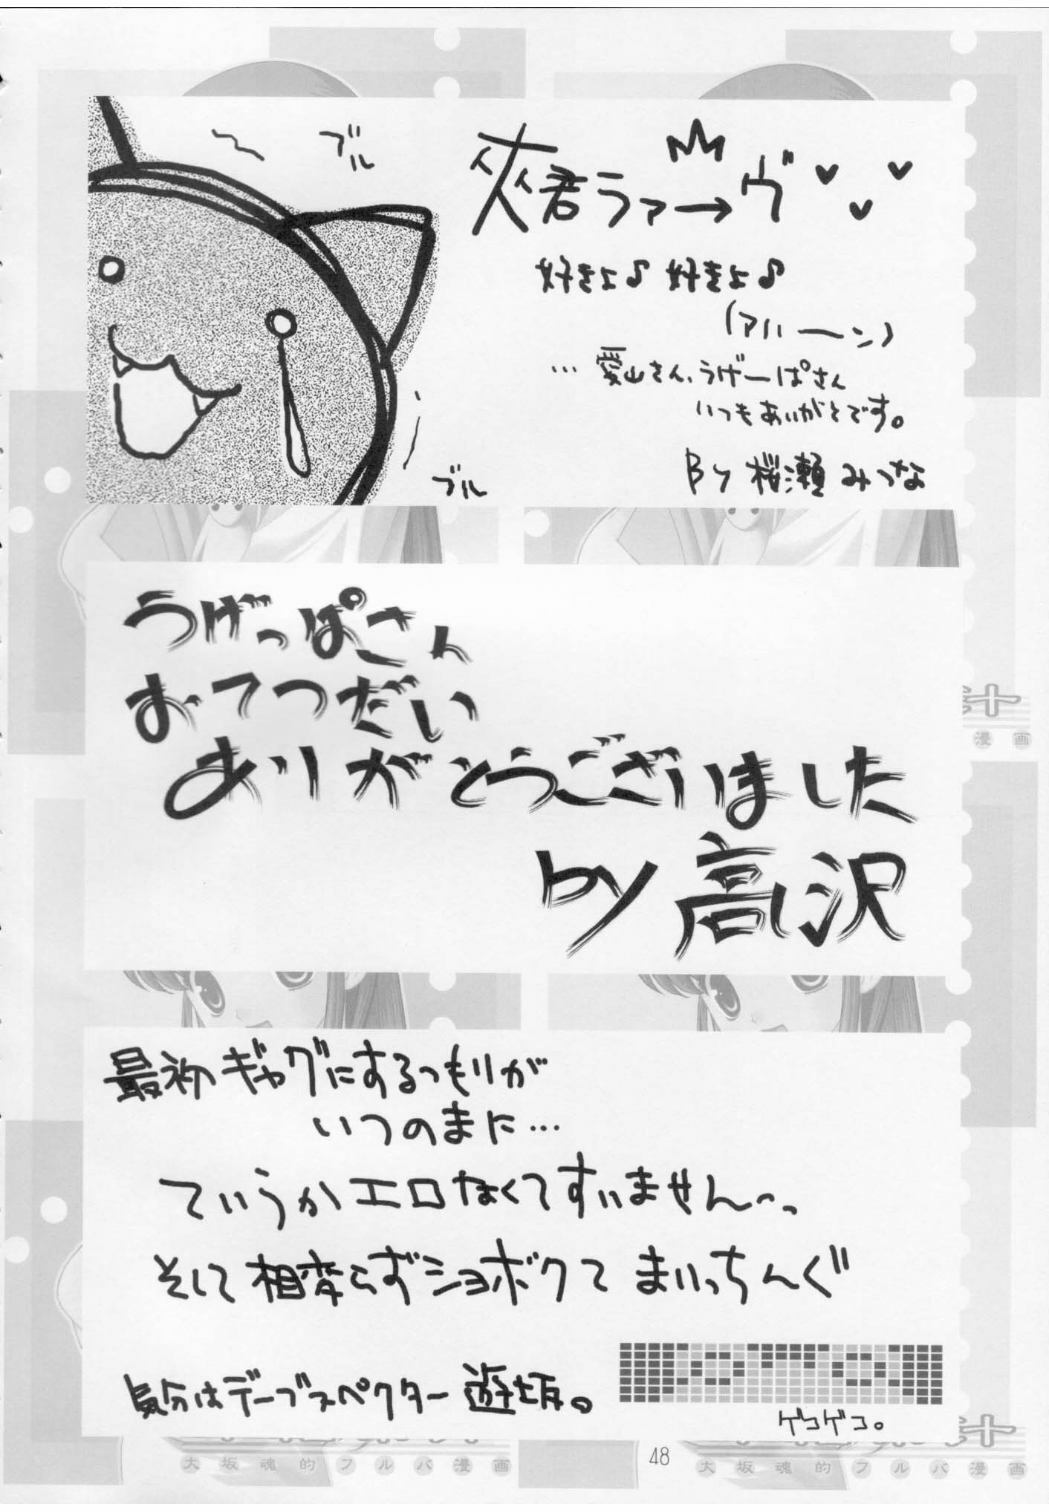 ブル
夾君ラァ→ヴ♥♥♥
好きよ♪ 好きよ♪
(アハーン)
… 愛山さん、うげーぱさん
いつもありがとです。
By 桜瀬 みつな
ブル
うげっぱさん
おてつだい
ありがとうございました
by 高沢
漫画
最初ギャグにするつもりが
いつのまに…
ていうかエロなくてすいません〜っ
そして相変らずショボクて まいっちんぐ
気分はデーブスペクター 遊坂。
ゲコゲコ。
大坂魂的フルバ漫画
48
大坂魂的フルバ漫画